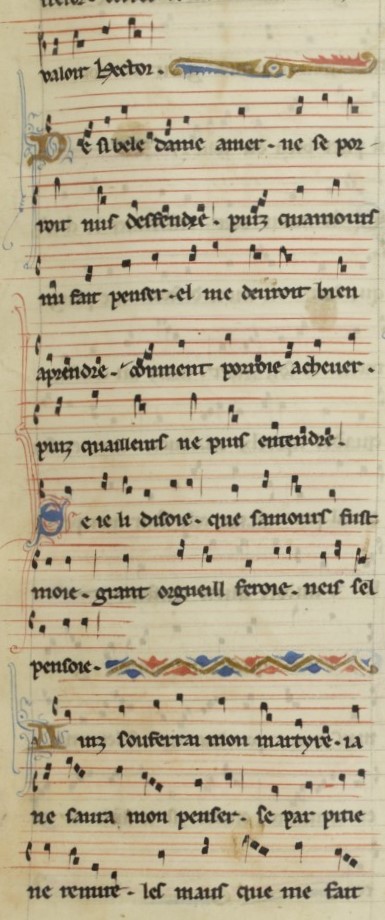 valoir hector.
De si bele dame amer. ne se por
roit nus deffendre. puiz quamours
mi fait penser. el me deuroit bien
aprendre. conment porroie acheuer.
puiz quailleurs ne puis entendre.
Se ie li disoie. que samours fust
moie. grant orgueill feroie. neis sel
pensoie.
Ainz soufferrai mon martyre. ia
ne saura mon penser. se par pitie
ne remire. les maus que me fait